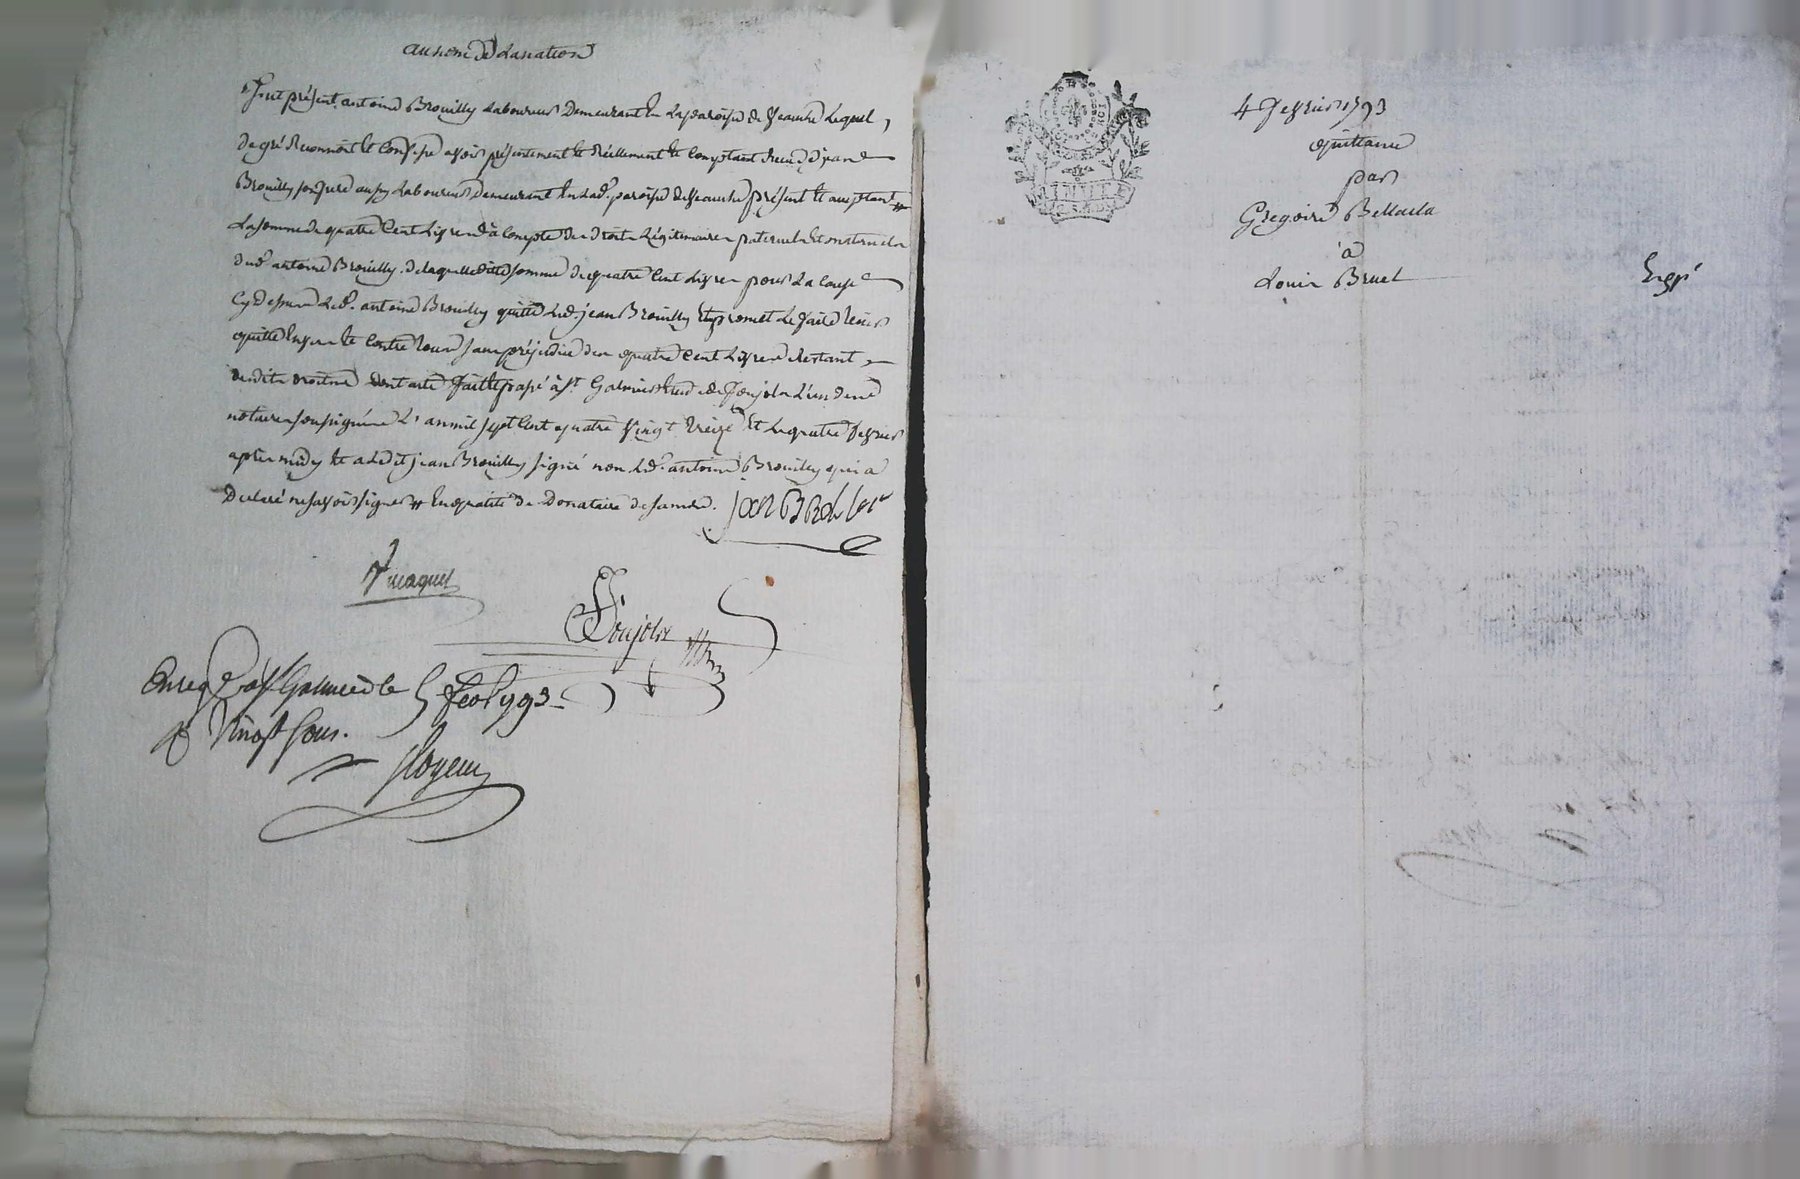 au nom de la nation
Fut présent antoine Brouilly Laboureur Demeurant En La paroisse de Veauche Lequel,
de gré Reconnoit et Confesse avoir présentement et Réellement et Comptant Receu de jean
Brouilly son frere aussy Laboureur demeurant En Lad. paroisse de Veauche présent et acceptant #
La somme de quatre Cent Livres à Compte des droits Légitimaires paternels et maternels
dud. antoine Brouilly. de laquelle ditte somme de quatre Cent Livres pour La Cause
Cy dessus Led. antoine Brouilly quitte Led. jean Brouilly Et promet Le faire tenir
quitte Envers et Contre tous sans préjudice des quatre Cent Livres Restant
desdits droits dont acte fait et passé à St. Galmier Etude de Poujols L'un des
notaires soussignés L'an mil sept Cent quatre Vingt treize Et Le quatre fevrier
après midy Et a Ledit jean Brouilly signé non Led. antoine Brouilly qui a
declaré ne savoir signer # En qualité de Donataire de sa mere.
Poujols
Enreg. à St Galmier le 5 feb 1793
R Vingt sous.
4 fevrier 1793
quittance
par
Gregoire Bellacla
à
Louis Bruel
Engé